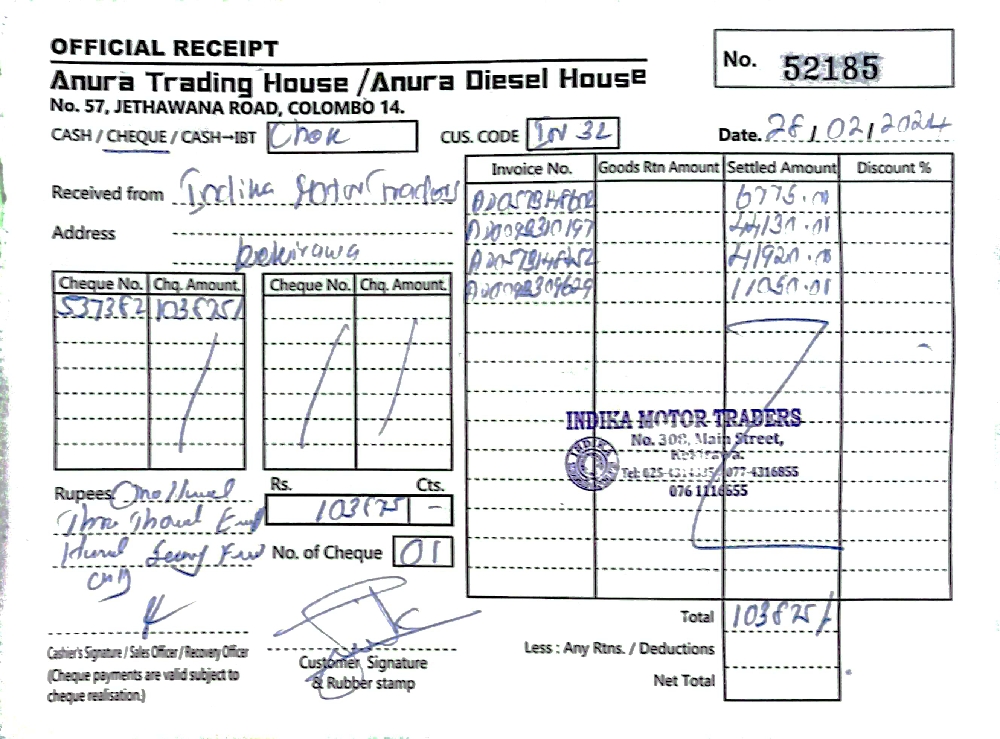 OFFICIAL RECEIPT
No. 52185
Anura Trading House / Anura Diesel House
No. 57, JETHAWANA ROAD, COLOMBO 14.
CASH / CHEQUE / CASH→IBT Chek CUS. CODE IN 32 Date. 28/02/2024
Invoice No. Goods Rtn Amount Settled Amount Discount %
Received from Indika Motor Traders
6775.00
44130.00
Address
41920.00
Kekirawa
11050.00
Cheque No. Chq. Amount. Cheque No. Chq. Amount.
537382 103875/
INDIKA MOTOR TRADERS
No. 308, Main Street,
Kekirawa.
077-4316855
076 1116555
Rupees One Hund
Rs. Cts.
103875 -
Three Thousd
Hund No. of Cheque 01
Total 103875/
Less : Any Rtns. / Deductions
Net Total
Cashier's Signature / Sales Officer / Recovery Officer
(Cheque payments are valid subject to
cheque realisation.)
Customer, Signature
& Rubber stamp